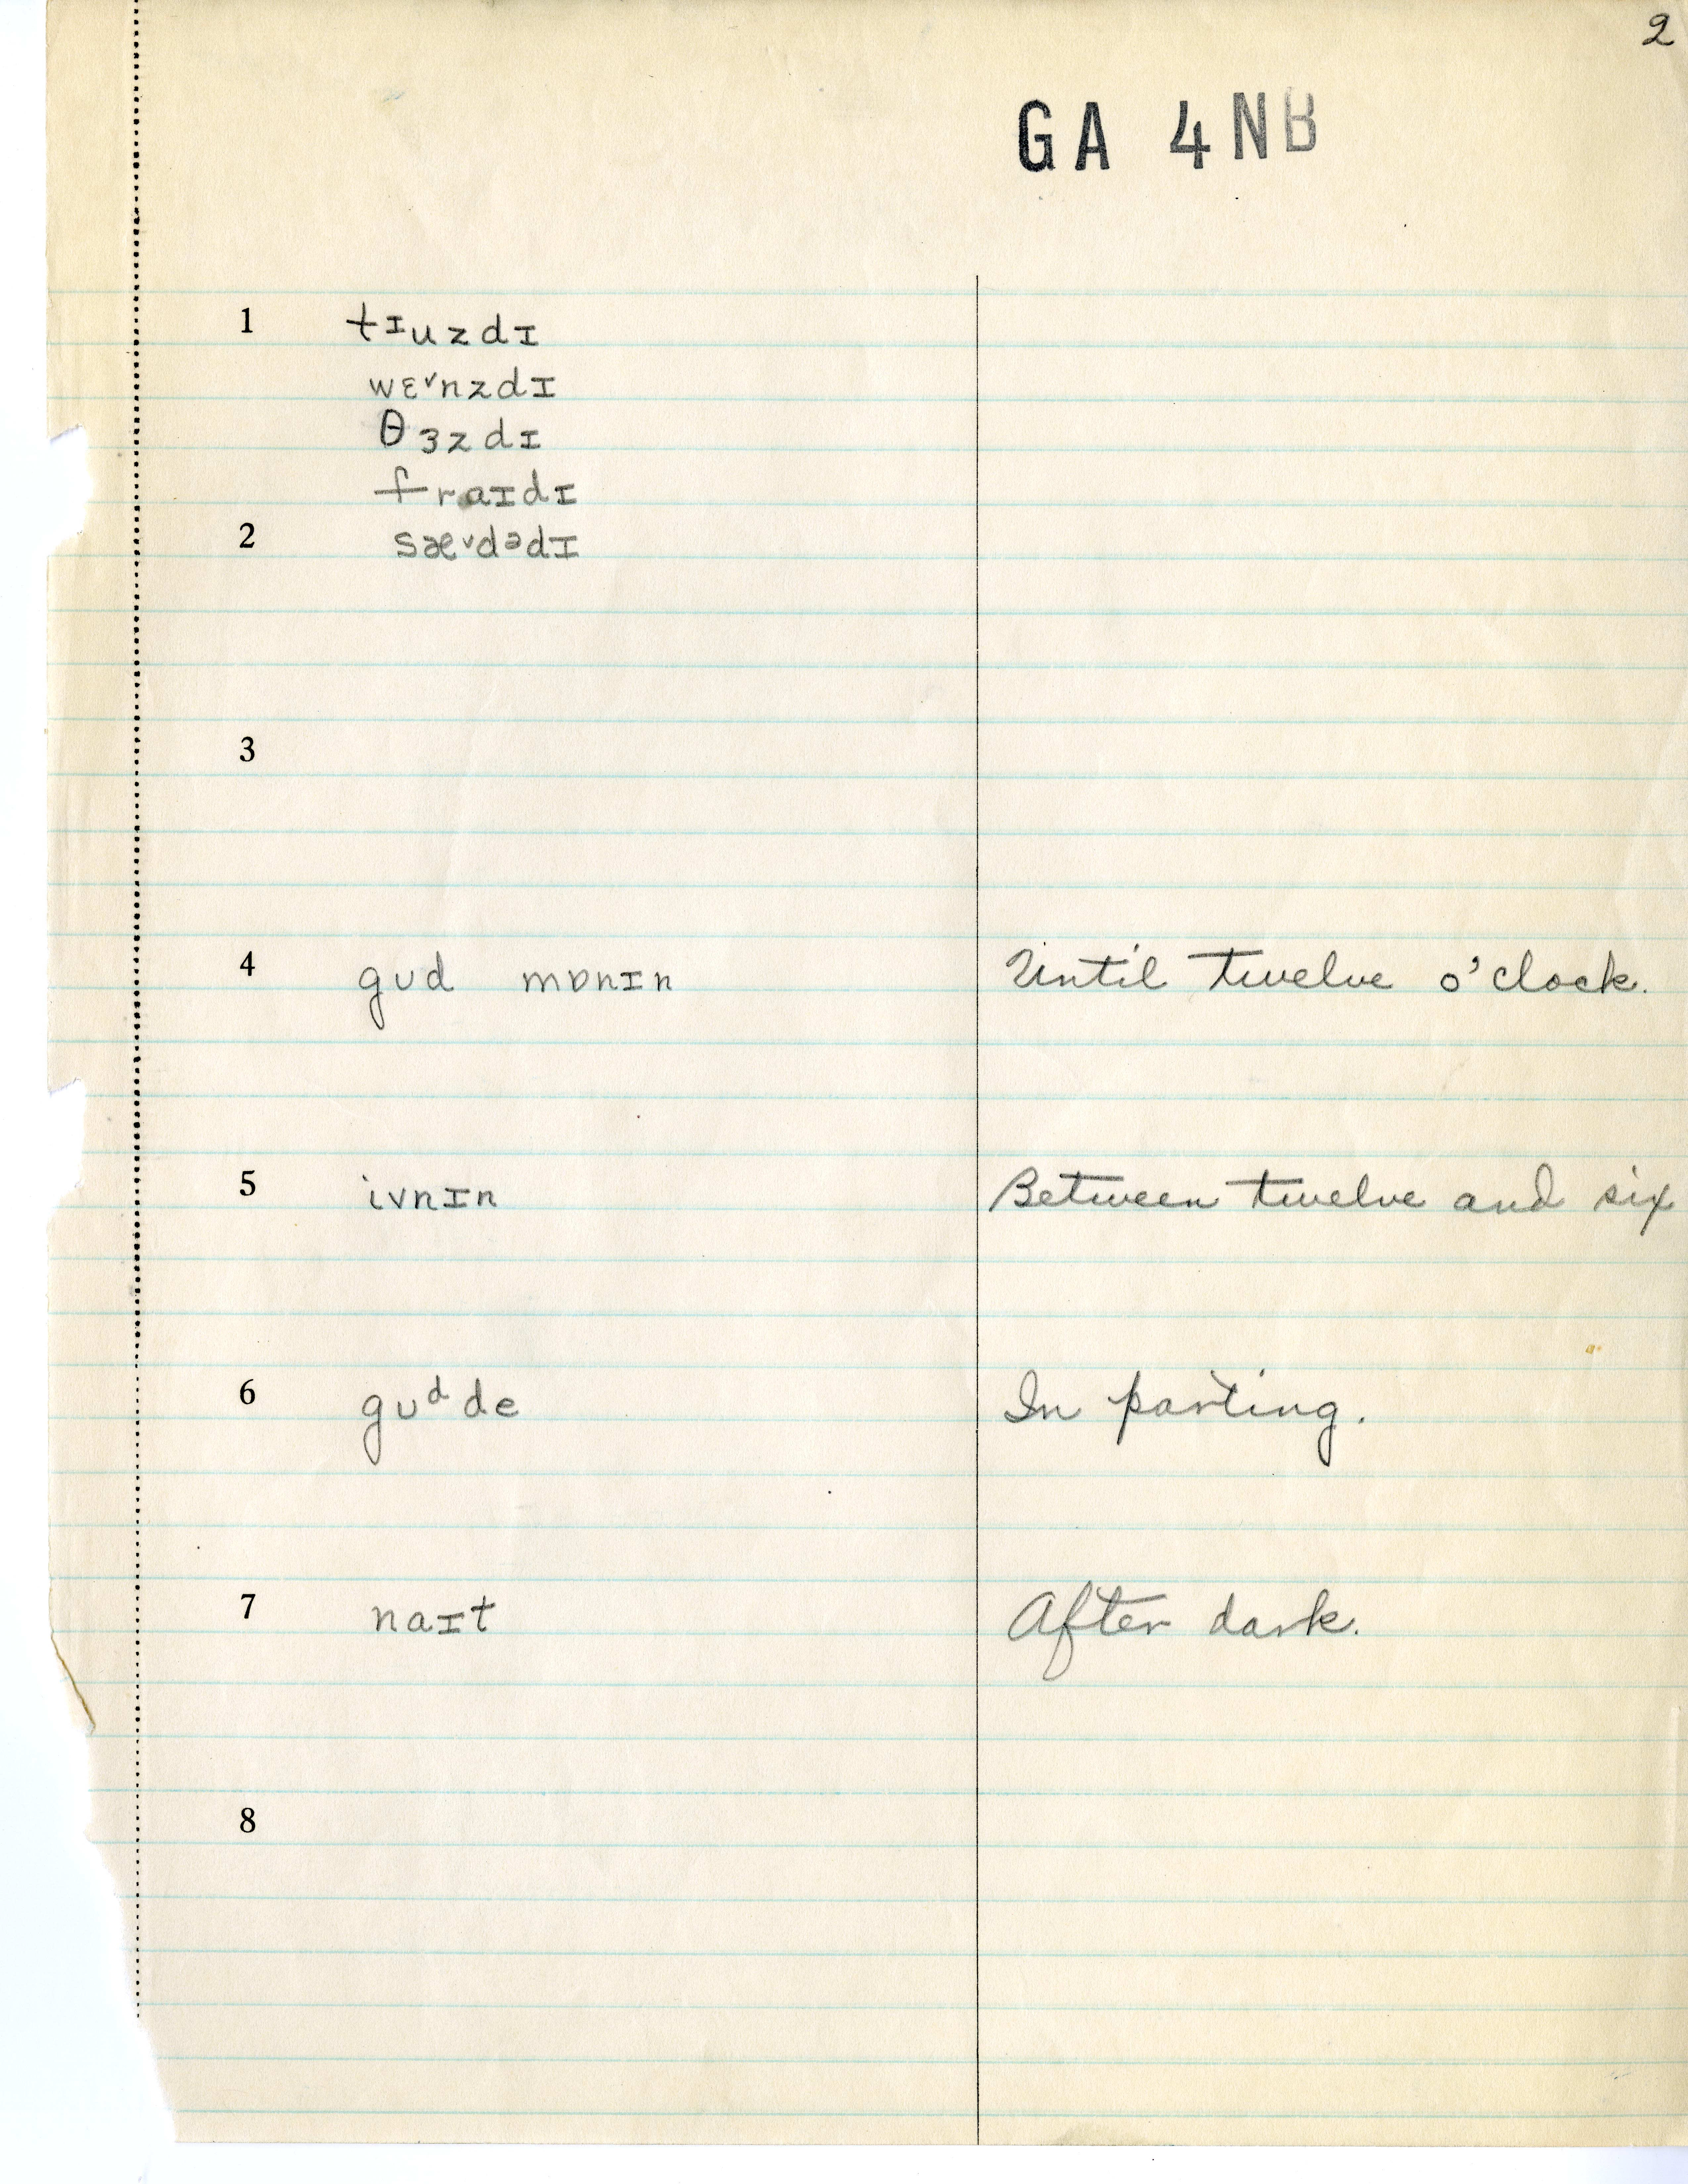 2
GA 4NB
1 tᶦuzdɪ
wɛ˅nzdɪ
θɜzdɪ
fraɪdɪ
2 sæ˅dᵊdɪ
3
4 gʊd mɒnɪn Until twelve o'clock.
5 ivnɪn Between twelve and six
6 gʊᵈde In parting.
7 naɪt After dark.
8